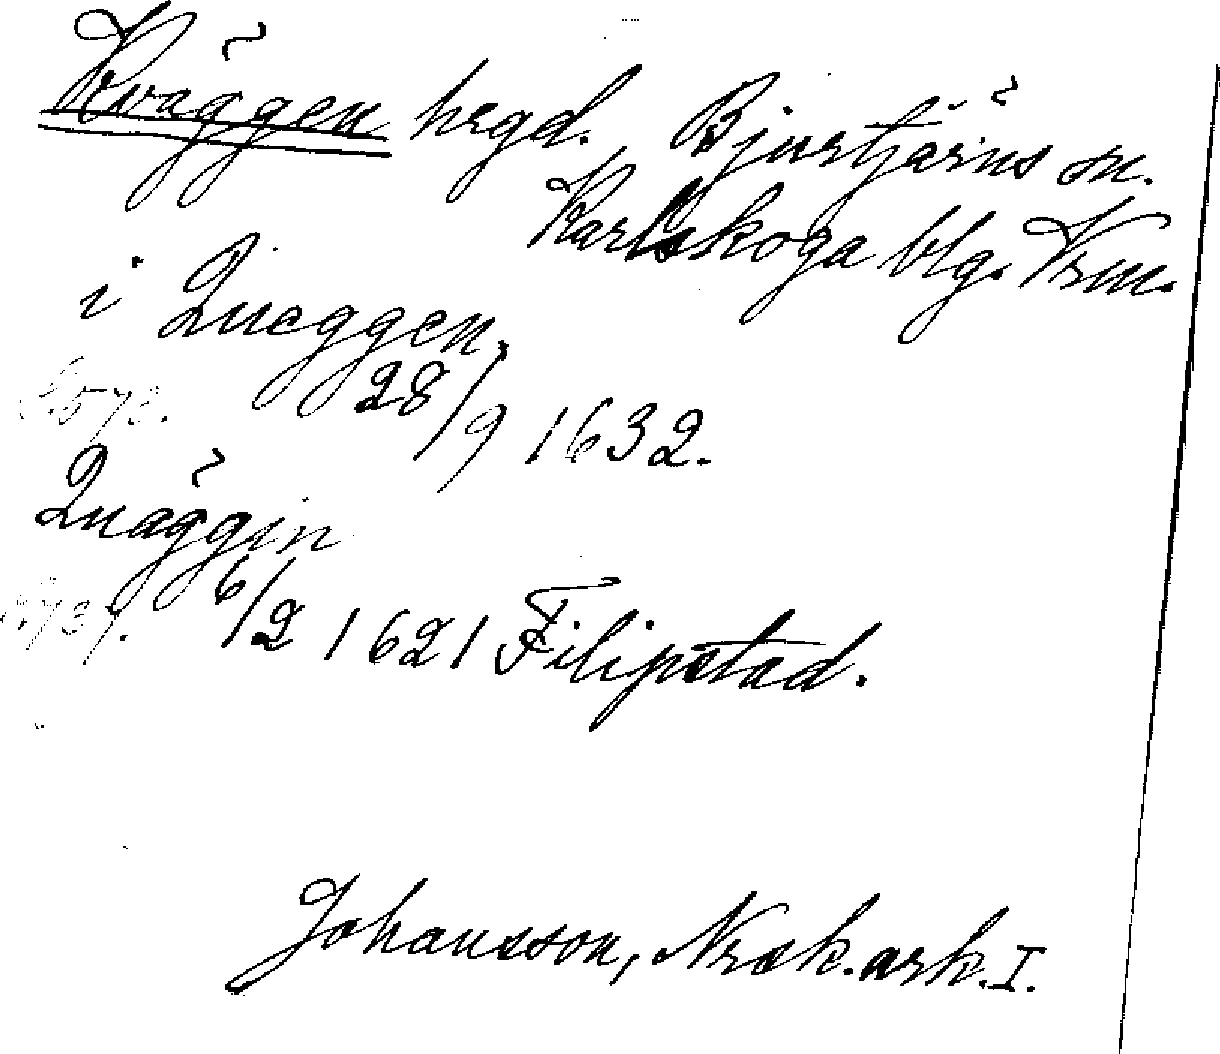 Kväggen hrgd. Bjurtjärns sn.
Karlskoga blg. Vrm.
i Queggen,
28/9 1632.
Quäggin
6/2 1621 Filipstad.
Johansson, Norsk. ark. I.